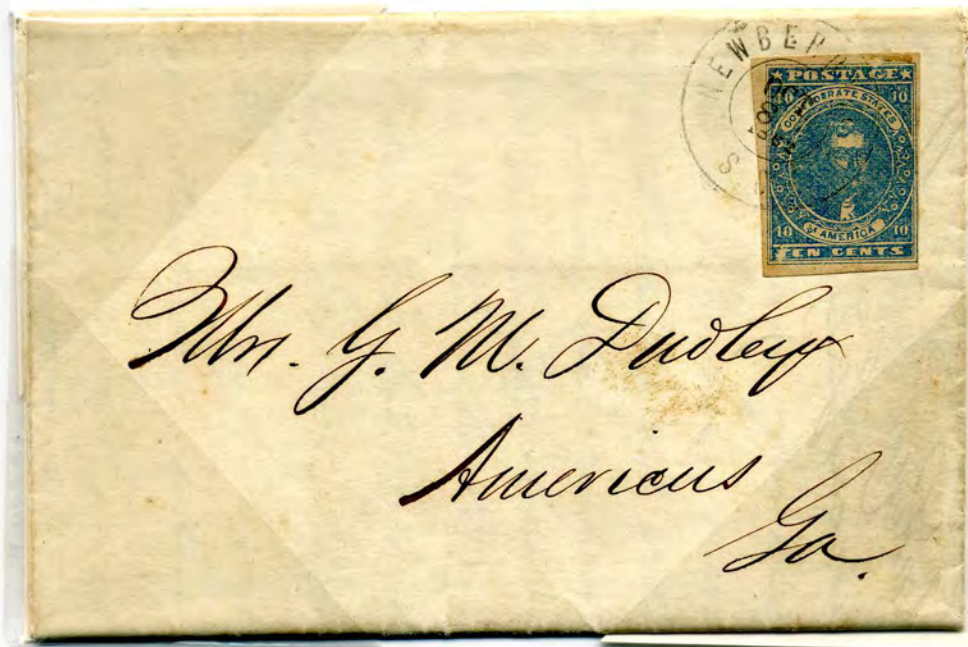 NEWBE
POSTAGE
10 10
CONFEDERATE STATES
OF AMERICA
10 10
TEN CENTS
Mr. G. M. Dudley
Americus
Ga.